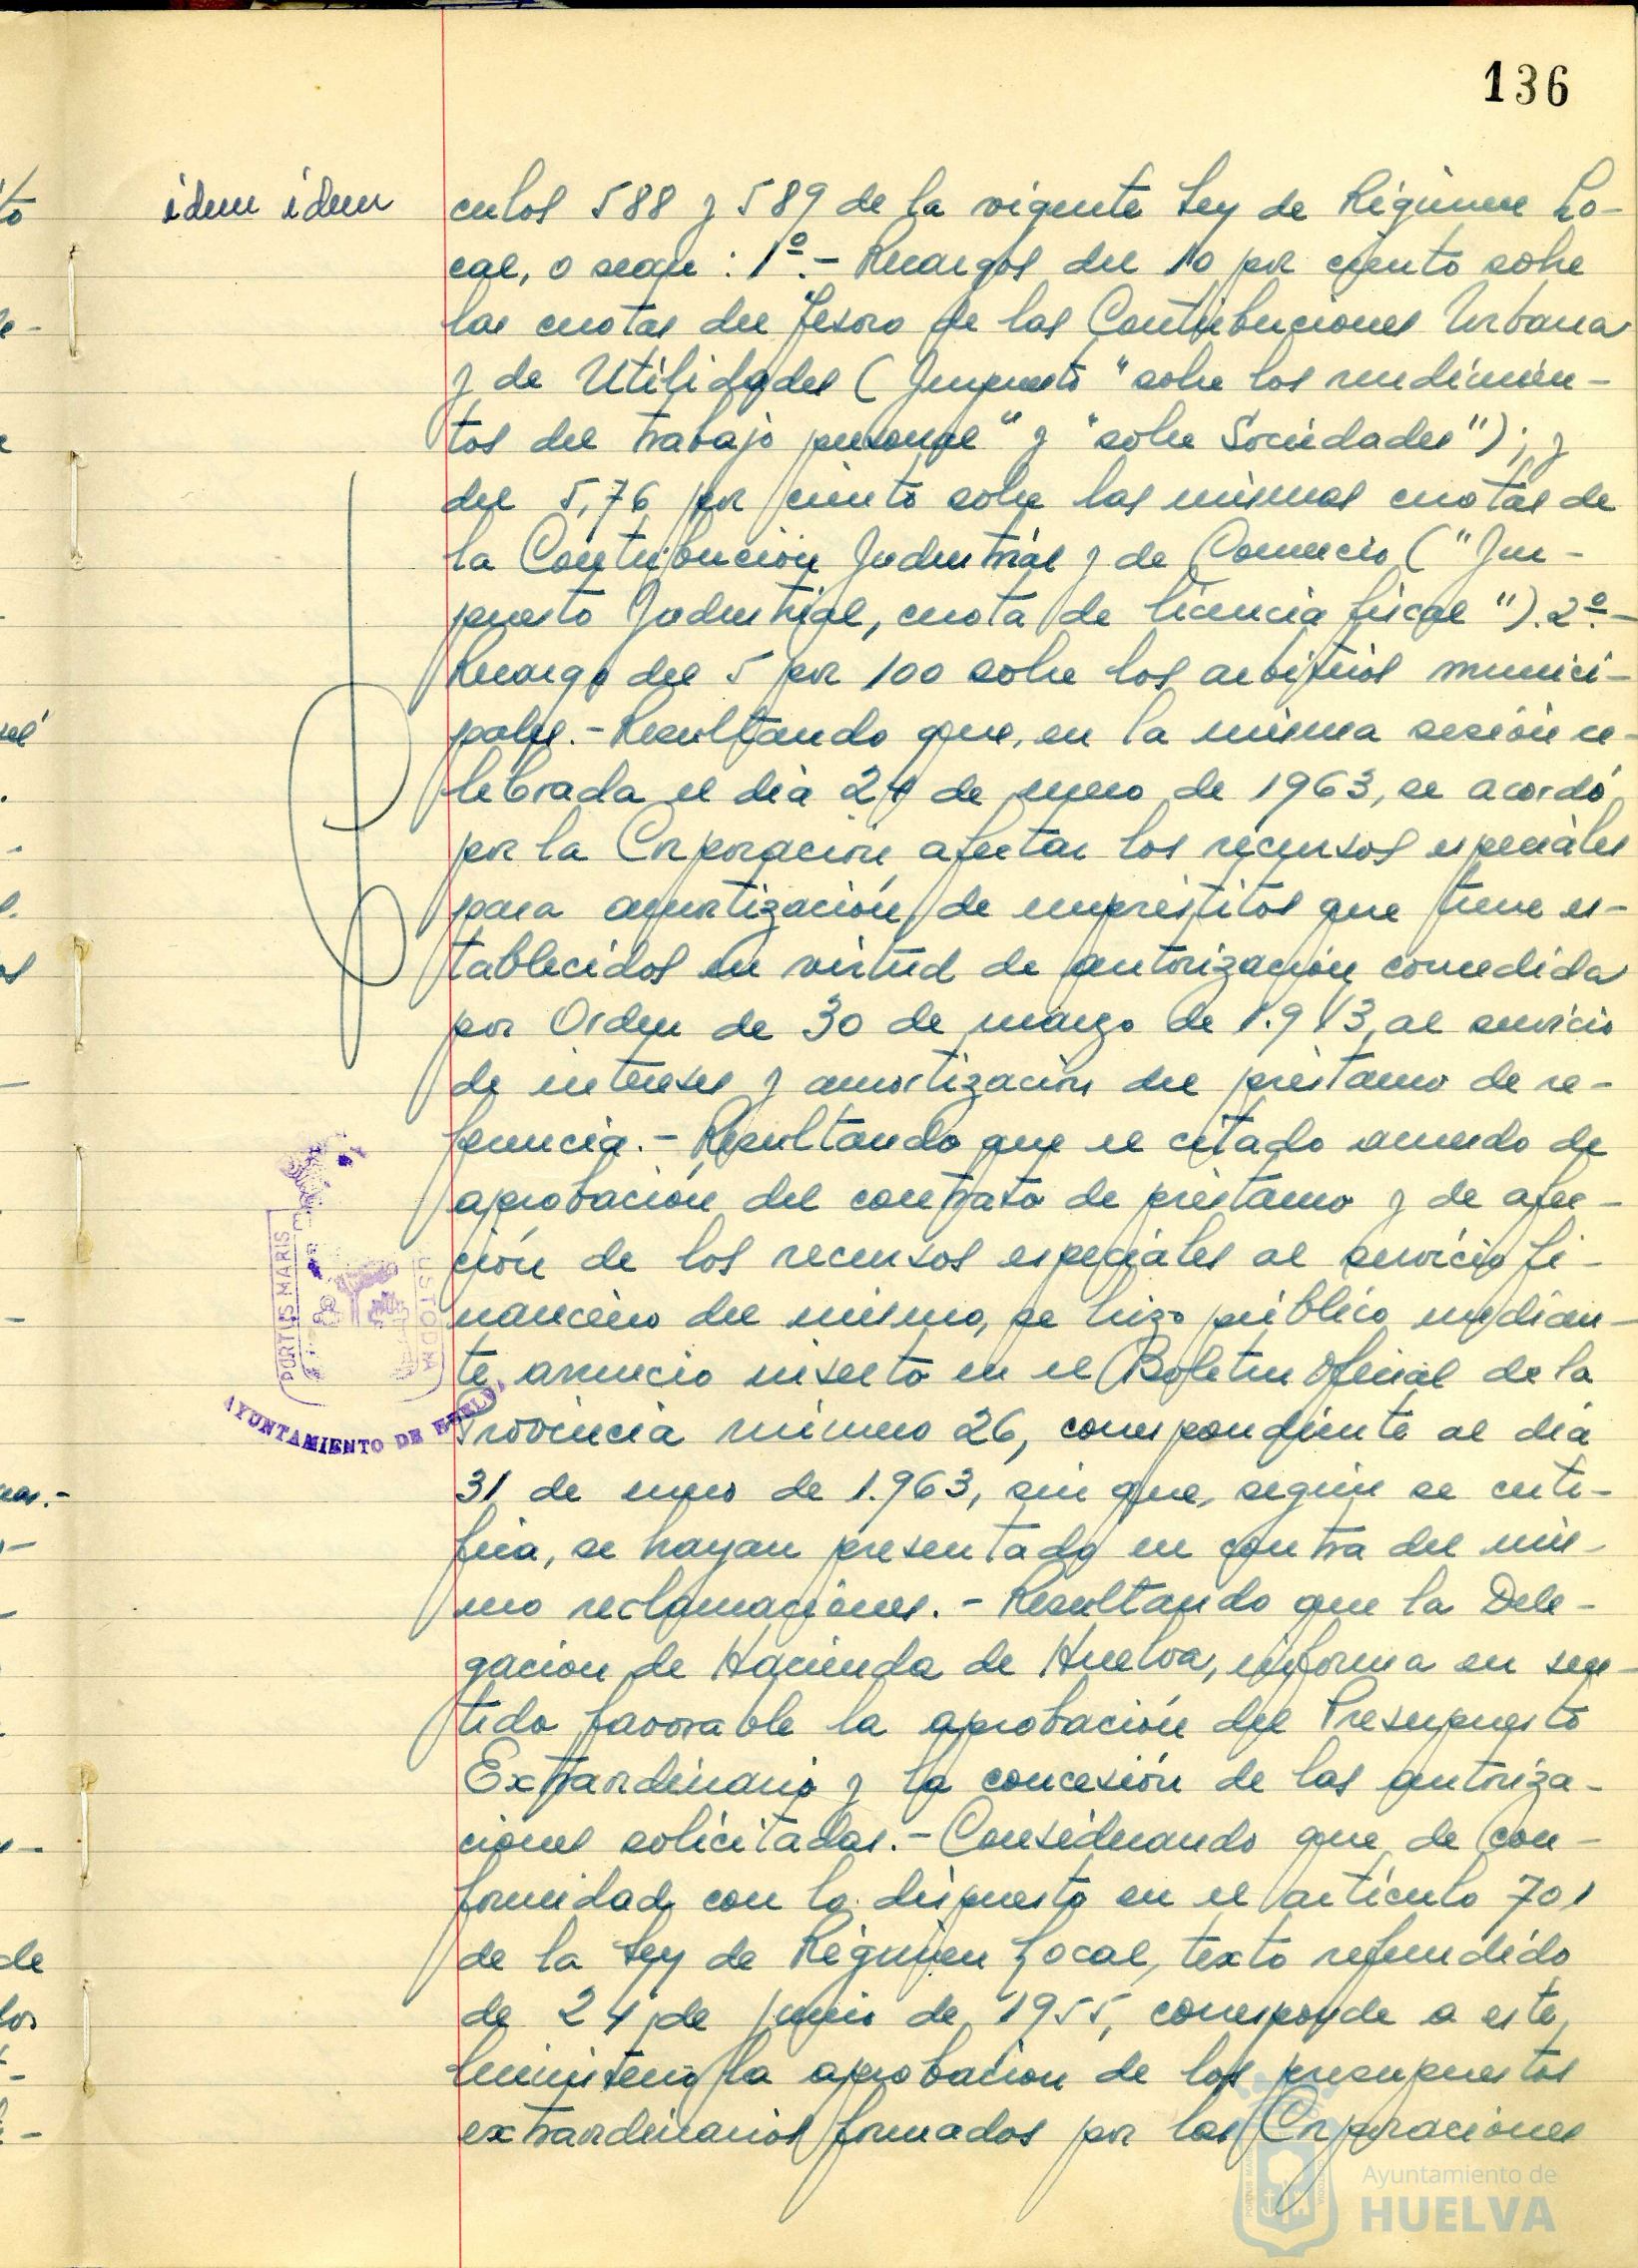 136
idem idem
culos 588 y 589 de la vigente Ley de Régimen Lo-
cal, o sean: 1º.- Recargos del 10 por ciento sobre
las cuotas del Tesoro de las Contribuciones Urbana
y de Utilidades (Impuesto "sobre los rendimien-
tos del trabajo personal" y "sobre Sociedades"); y
del 5,76 por ciento sobre las mismas cuotas de
la Contribución Industrial y de Comercio ("Im-
puesto Industrial, cuota de licencia fiscal"). 2º.-
Recargo del 5 por 100 sobre los arbitrios munici-
pales.- Resultando que, en la misma sesión ce-
lebrada el día 24 de enero de 1963, se acordó
por la Corporación afectar los recursos especiales
para amortización de empréstitos que tiene es-
tablecidos en virtud de autorización concedida
por Orden de 30 de marzo de al servicio
de intereses y amortización del préstamo de re-
ferencia.- Resultando que el citado acuerdo de
aprobación del contrato de préstamo y de afec-
ción de los recursos especiales al servicio fi-
nanciero del mismo, se hizo público median-
te anuncio inserto en el Boletín Oficial de la
Provincia número 26, correspondiente al día
31 de enero de 1.963, sin que, según se certi-
fica, se hayan presentado en contra del mis-
mo reclamaciones.- Resultando que la Dele-
gación de Hacienda de Huelva, informa en sen-
tido favorable la aprobación del Presupuesto
Extraordinario y la concesión de las autoriza-
ciones solicitadas.- Considerando que de con-
formidad con lo dispuesto en el artículo 701
de la Ley de Régimen Local, texto refundido
de 24 de junio de 1955, corresponde a este
Ministerio la aprobación de los presupuestos
extraordinarios formados por las Corporaciones
PORTUS MARIS
USTODIA
AYUNTAMIENTO DE HUELVA
Ayuntamiento de
HUELVA